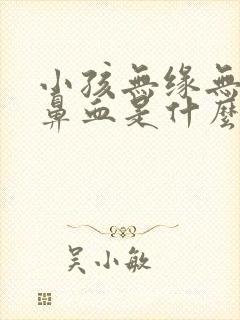 小孩無缘無
鼻血是什麼
吴小敏